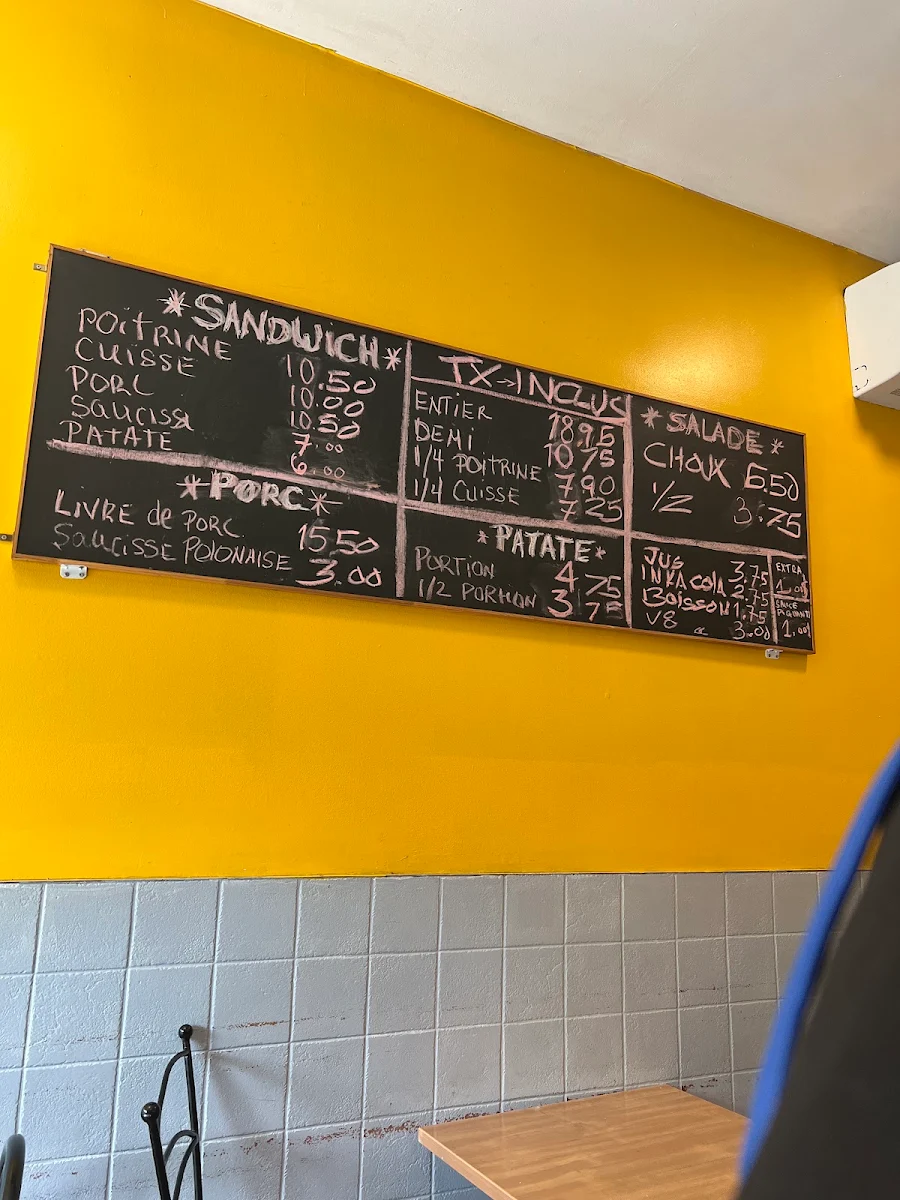 *SANDWICH*
POITRINE 10.50
CUISSE 10.00
PORC 10.50
SAUCISSE 7.00
PATATE 6.00
*PORC*
LIVRE de PORC 15.50
SAUCISSE POLONAISE 3.00
TX→INCLUS
ENTIER 18.95
DEMI 10.75
1/4 POITRINE 7.90
1/4 CUISSE 7.25
*PATATE*
PORTION 4.75
1/2 PORTION 3.75
*SALADE*
CHOUX 6.50
1/2 3.75
JUS 3.75
INKA COLA 2.75
BOISSON 1.75
V8 3.00
EXTRA
1.00
SAUCE
PIQUANTE
1.00